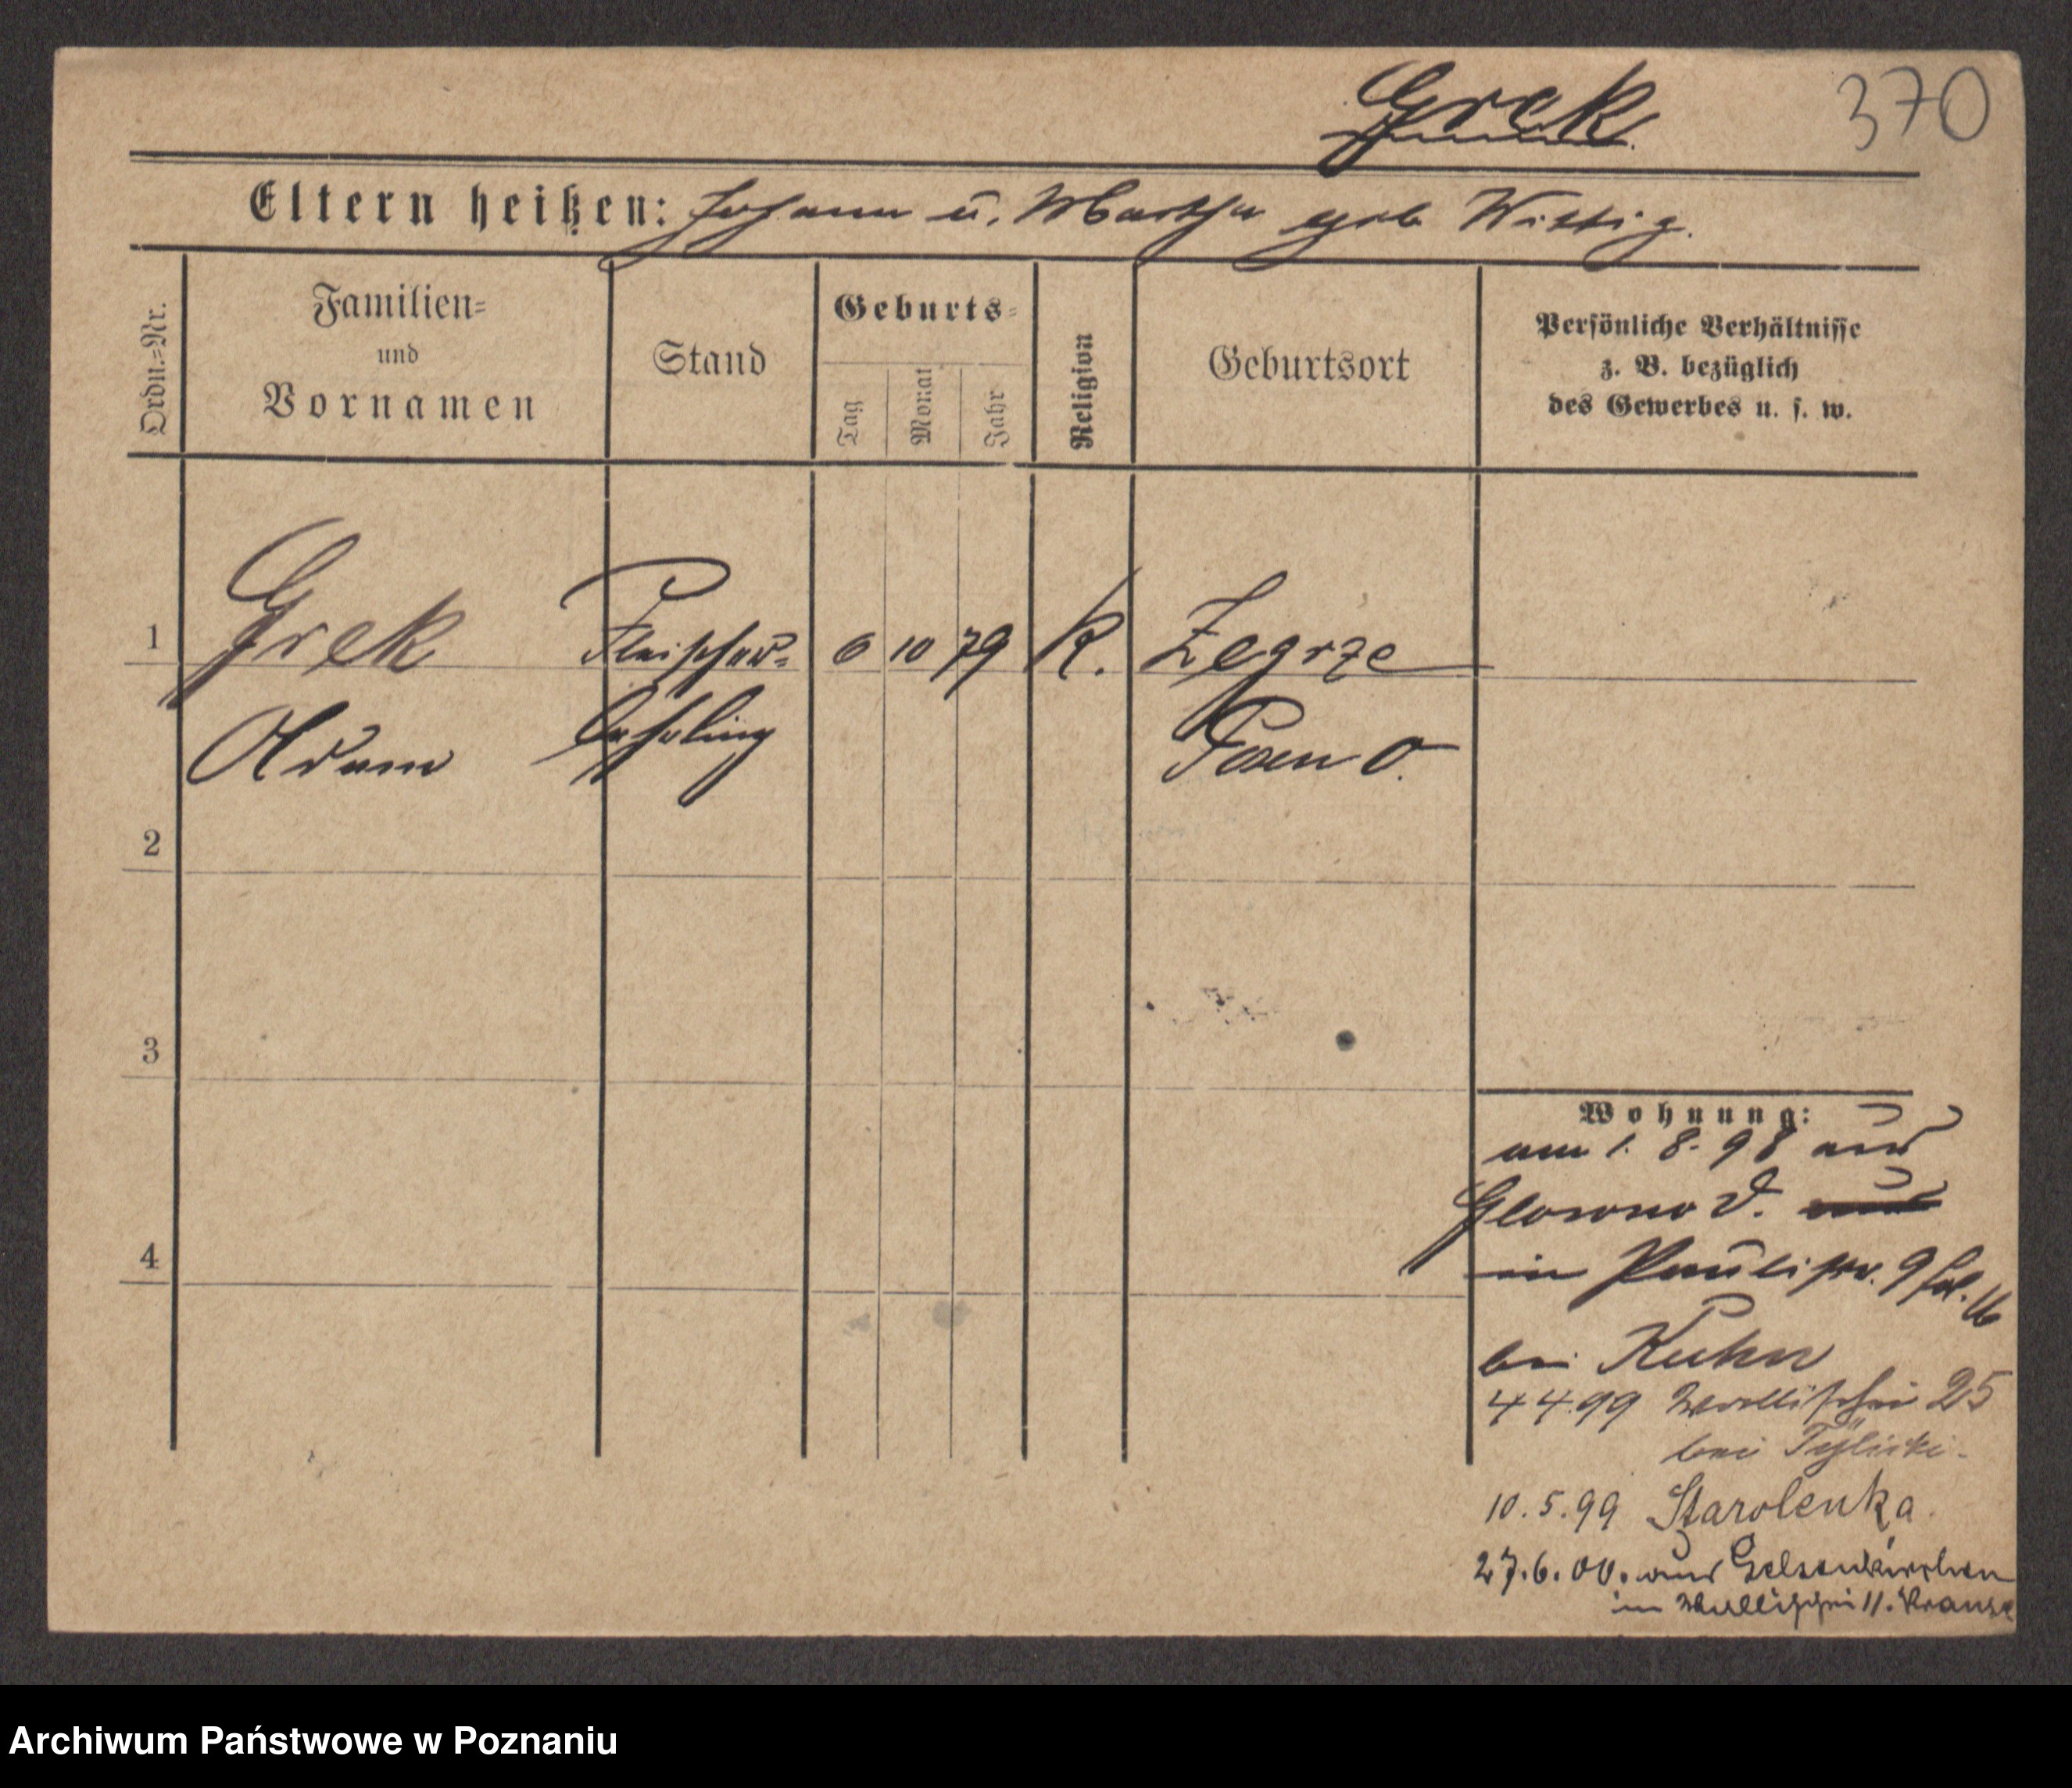 Grek
370
Eltern heißen: Johann u. Martha geb Wittig.
Ordn.=Nr.
Familien=
und
Vornamen
Stand
Geburts=
Tag
Monat
Jahr
Religion
Geburtsort
Persönliche Verhältnisse
z. B. bezüglich
des Gewerbes u. s. w.
1 Grek Fleischer= 6 10 79 K. Zegrze
Adam Lehrling Posen O.
2
3
4
Wohnung:
am 1. 8. 98 aus
in Paulistr. 9
bei Kuhn
4 4.99 Wallischei 25
bei Tylicki.
10.5.99 Starolenka.
27.6.00. aus Gelsenkirchen
in Wallischei 11. Krause